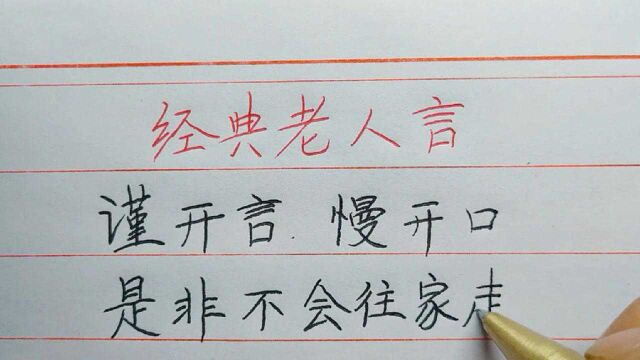 经典老人言
谨开言 慢开口
是非不会往家走